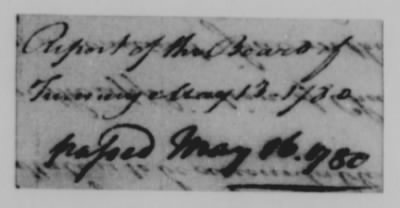 Report of the Board of
Treasury May 13. 1780
passed May 16. 1780